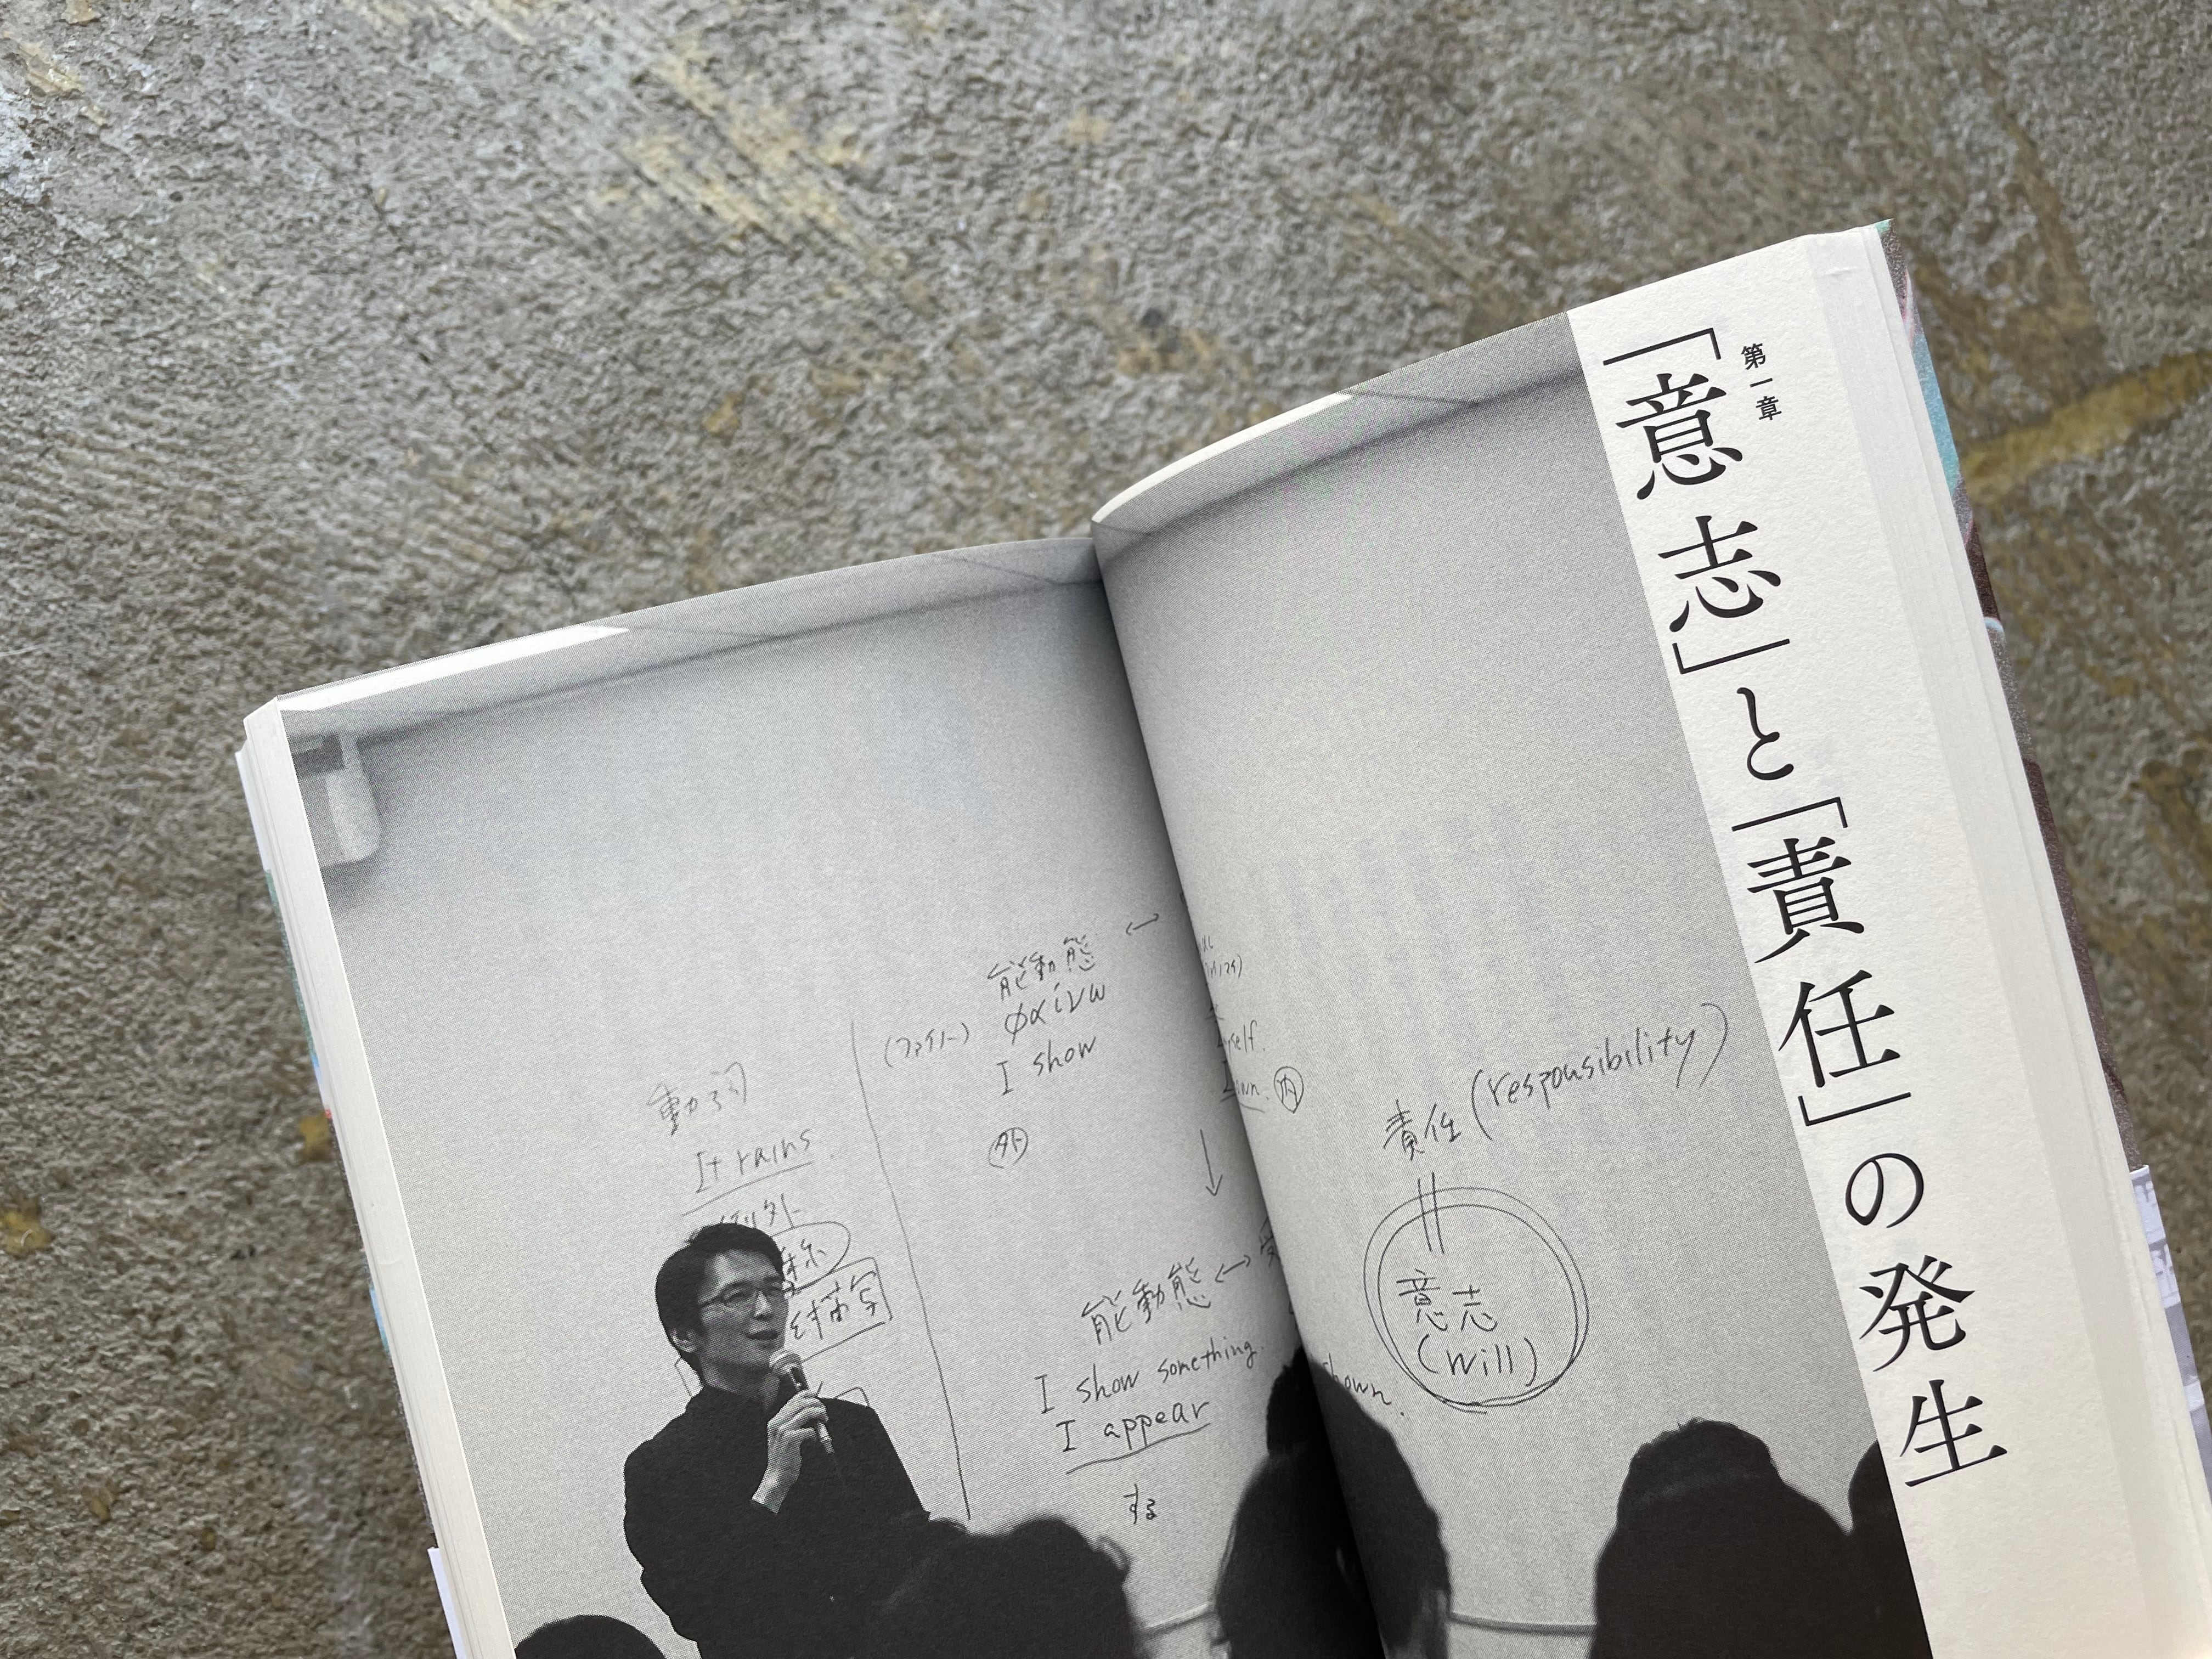 第一章
「意志」と「責任」の発生
動詞
It rains
例外
描写
能動態 ↔
(ファイノー) φαίνω
I show
外
内
↓
能動態 ↔ 受
I show something.
I appear
する
shown.
責任 (responsibility)
意志
(will)